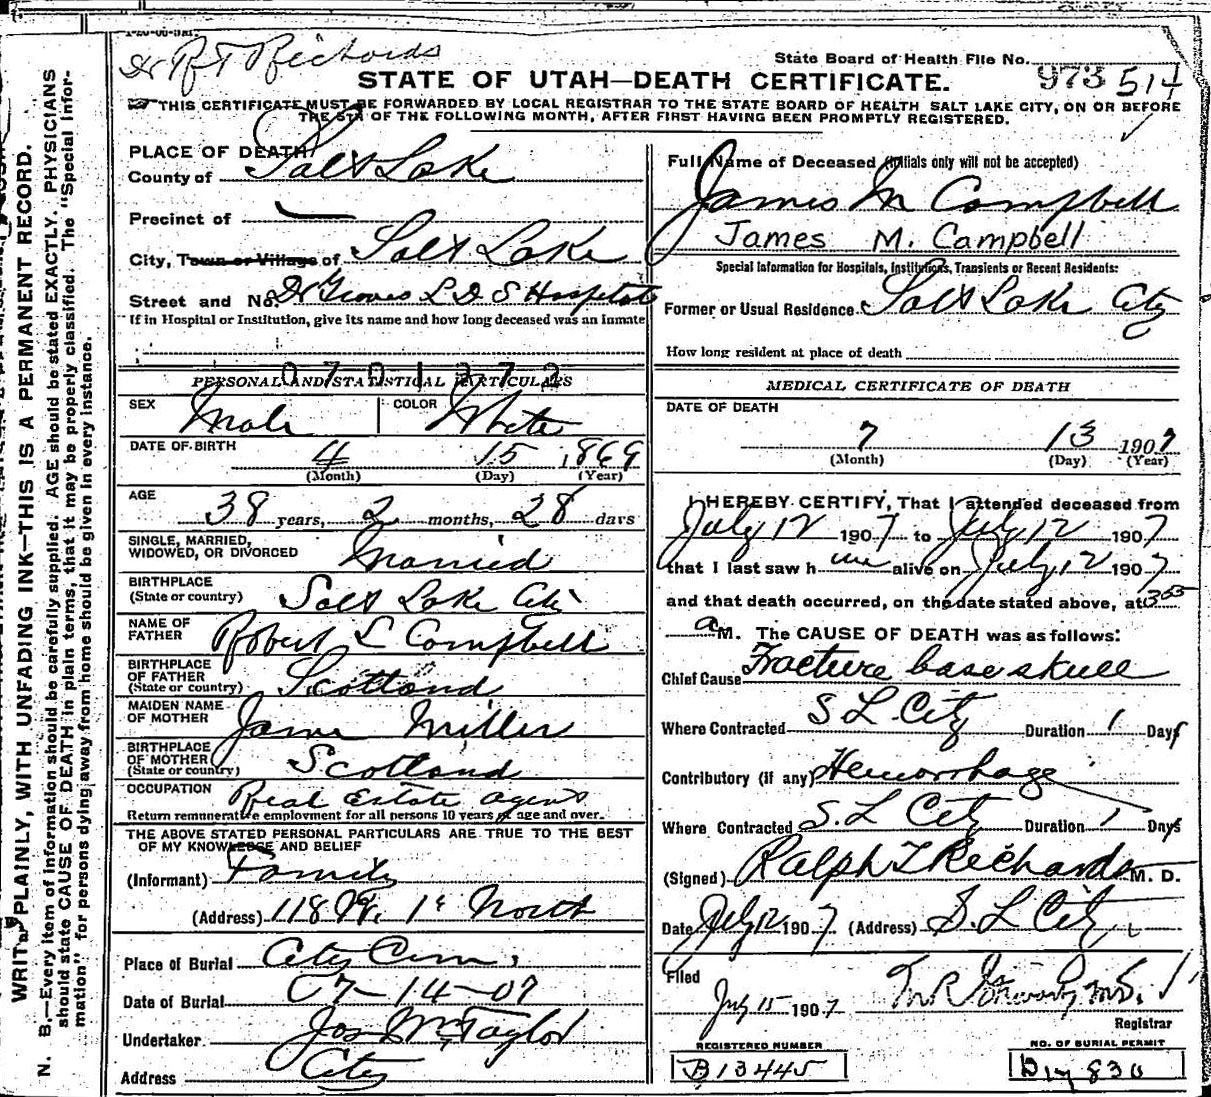 Dr RT Richards
State Board of Health File No. 973 514
STATE OF UTAH—DEATH CERTIFICATE.
THIS CERTIFICATE MUST BE FORWARDED BY LOCAL REGISTRAR TO THE STATE BOARD OF HEALTH SALT LAKE CITY, ON OR BEFORE
THE 5TH OF THE FOLLOWING MONTH, AFTER FIRST HAVING BEEN PROMPTLY REGISTERED.
WRITE PLAINLY, WITH UNFADING INK—THIS IS A PERMANENT RECORD.
N. B.—Every item of information should be carefully supplied. AGE should be stated EXACTLY. PHYSICIANS
should state CAUSE OF DEATH in plain terms, that it may be properly classified. The "Special Infor-
mation" for persons dying away from home should be given in every instance.
PLACE OF DEATH
County of Salt Lake
Precinct of —
City, Town or Village of Salt Lake
Street and No. Dr Groves L D S Hospital
If in Hospital or Institution, give its name and how long deceased was an inmate
0701372
PERSONAL AND STATISTICAL PARTICULARS
SEX Male COLOR White
DATE OF BIRTH 4 15 1869
(Month) (Day) (Year)
AGE 38 years, 2 months, 28 days
SINGLE, MARRIED,
WIDOWED, OR DIVORCED Married
BIRTHPLACE
(State or country) Salt Lake City
NAME OF
FATHER Robert L Campbell
BIRTHPLACE
OF FATHER
(State or country) Scotland
MAIDEN NAME
OF MOTHER Jane Miller
BIRTHPLACE
OF MOTHER
(State or country) Scotland
OCCUPATION Real Estate agent
Return remunerative employment for all persons 10 years of age and over.
THE ABOVE STATED PERSONAL PARTICULARS ARE TRUE TO THE BEST
OF MY KNOWLEDGE AND BELIEF
(Informant) Family
(Address) 118 W. 1st North
Place of Burial City Cem,
Date of Burial 7-14-07
Undertaker Jos Wm Taylor
Address City
Full Name of Deceased (Initials only will not be accepted)
James M Campbell
James M. Campbell
Special Information for Hospitals, Institutions, Transients or Recent Residents:
Former or Usual Residence Salt Lake City
How long resident at place of death
MEDICAL CERTIFICATE OF DEATH
DATE OF DEATH
7 13 1907
(Month) (Day) (Year)
I HEREBY CERTIFY, That I attended deceased from
July 12 1907 to July 12 1907
that I last saw him alive on July 12 1907
and that death occurred, on the date stated above, at 305
a M. The CAUSE OF DEATH was as follows:
Chief Cause Fracture base skull
Where Contracted S L City Duration 1 Days
Contributory (if any) Hemorrhage
Where Contracted S. L City Duration 1 Days
(Signed) Ralph T Richards M. D.
Date July 12 1907 (Address) S. L City
Filed
July 15 1907
Registrar
REGISTERED NUMBER
B13445
NO. OF BURIAL PERMIT
D 17830